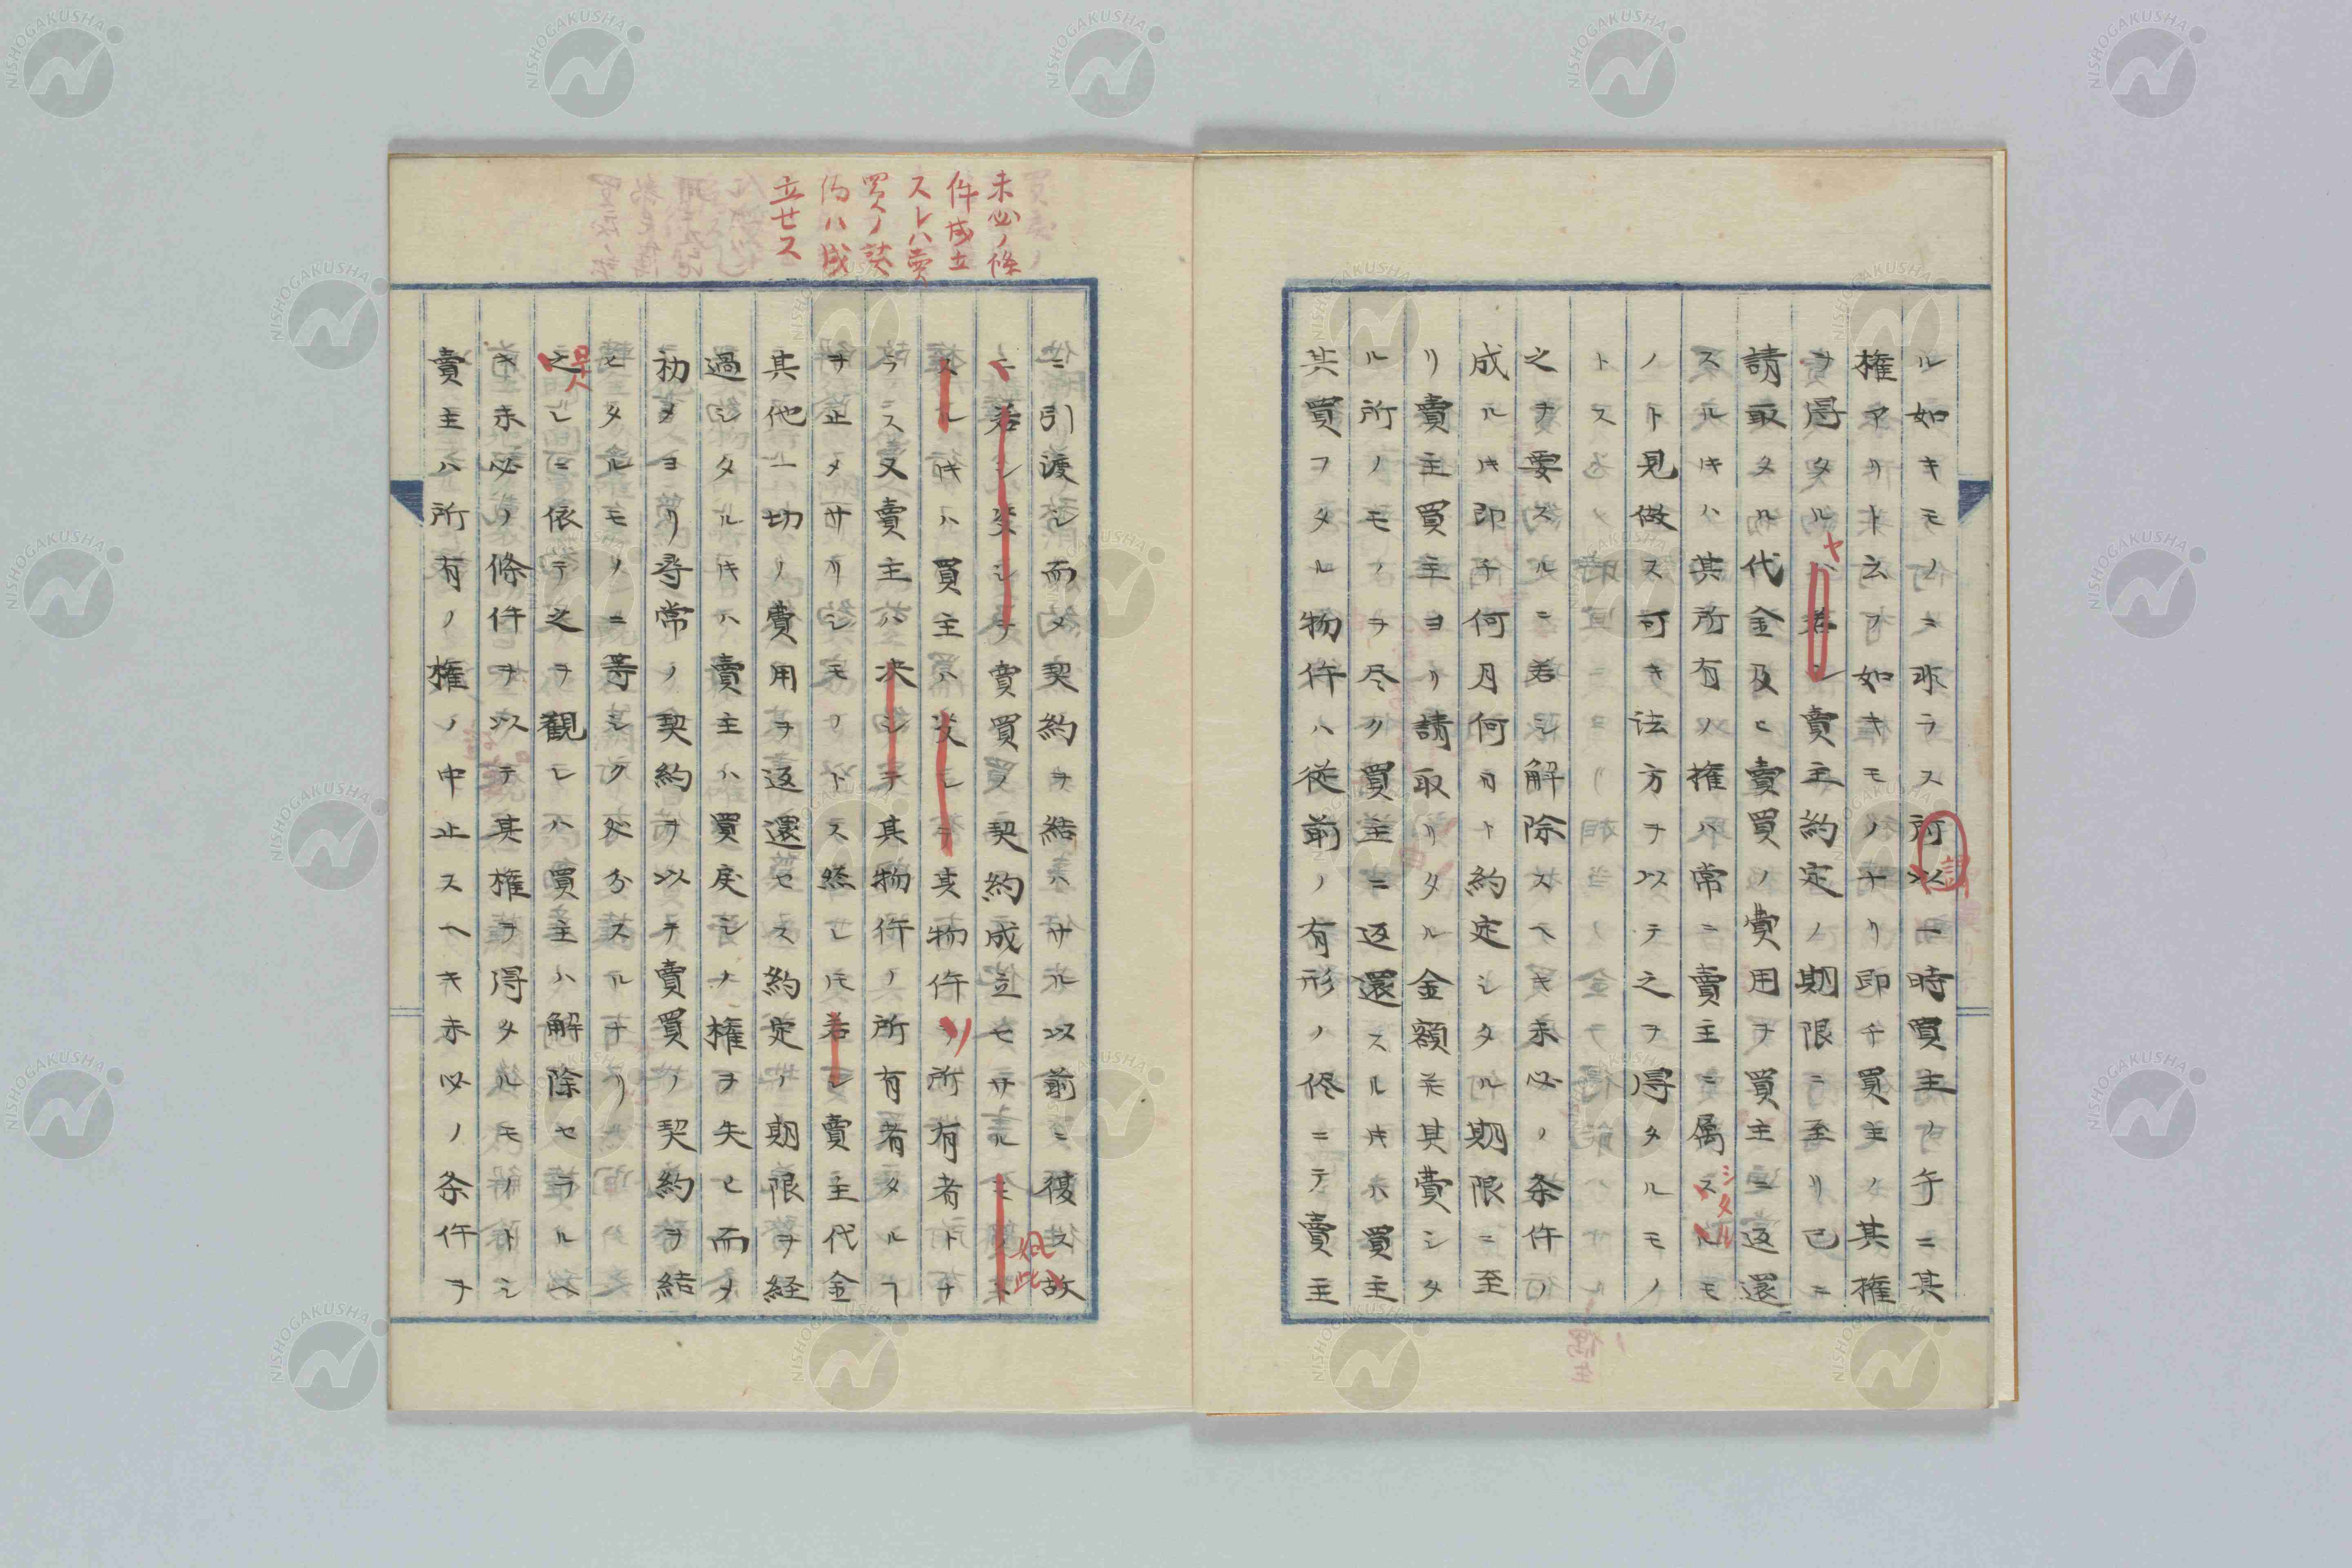 ル如キモノニ非ラス所以一時買主ノ手ニ其
謂
権アリト云フ如キモノナリ即チ買主ノ其権
ヲ得タルヤ若シ賣主約定ノ期限ニ至リ已ニ
請取タル代金及ヒ賣買ノ費用ヲ買主ニ返還
スルキハ其所有ノ権ハ常ニ賣主ニ属スルモ
シタル
ノト見做ス可キ法方ヲ以テ之ヲ得タルモノ
トス
之ヲ要スルニ若シ解除スヘキ未必ノ条件ノ
成ルキ即チ何月何日ト約定シタル期限ニ至
リ賣主買主ヨリ請取リタル金額並其費シタ
ル所ノモノヲ尽ク買主ニ返還スルキハ買主
其買フタル物件ハ従前ノ有形ノ侭ニテ賣主
未必ノ條
件成立
スレハ賣
買ノ契
約ハ成
立セス
ニ引渡シ而メ契約ヲ結ハサル以前ニ復ス故
如此
ニ若シ英シテ賣買ノ契約成立セサル
スルキハ買主ハ其物件ノ所有者トナ
ラス又賣主ハ決シテ其物件ノ所有者タルフ
ヲ止メサリシモノトス然レモ若シ賣主代金
其他一切ノ費用ヲ返還セス約定ノ期限ヲ経
過シタルキハ賣主ハ買戻シノ権ヲ失ヒ而メ
初メヨリ尋常ノ契約ヲ以テ賣買ノ契約ヲ結
ヒタルモノニ等シク処分スルナリ
之レニ依テ之ヲ観レハ買主ハ解除セラルヘ
キ未必ノ條件ヲ以テ其権ヲ得タルモノトシ
賣主ハ所有ノ権ノ中止スヘキ未必ノ条件ヲ
NISHOGAKUSHA